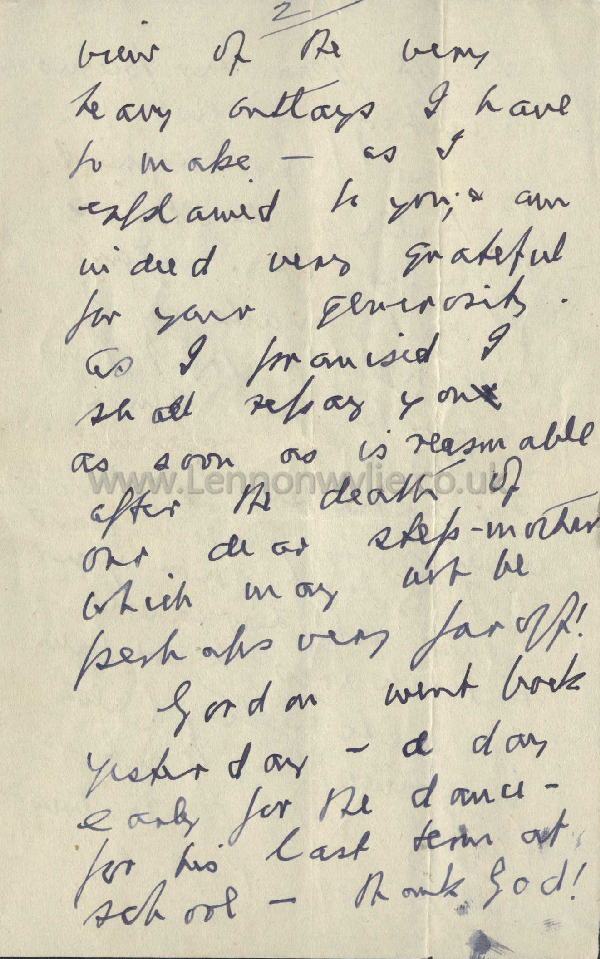 2
view of the very
heavy outlays I have
to make – as I
explained to you; & am
indeed very grateful
for your generosity.
As I promised I
shall repay you
as soon as is reasonable
www.Lennonwylie.co.uk
after the death of
our dear step-mother
which may not be
perhaps very far off!
Gordon went back
yesterday – a day
early for the dance –
for his last term at
school – thank God!